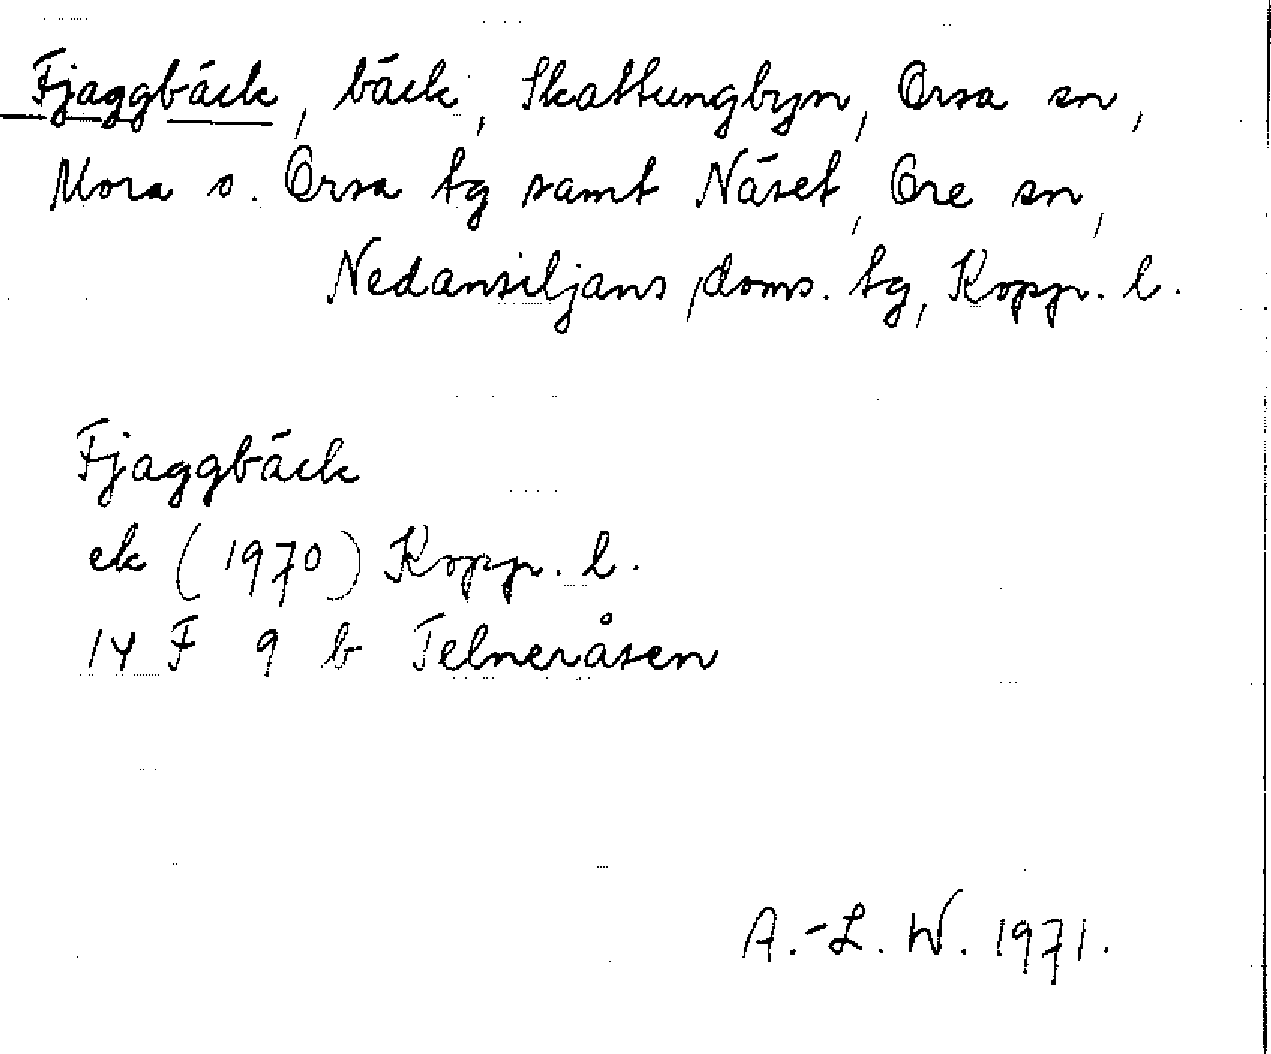 Fjaggbäck, bäck, Skattungbyn, Orsa sn,
Mora o. Orsa tg samt Näset, Ore sn,
Nedansiljans doms. tg, Kopp. l.
Fjaggbäck
ek (1970) Kopp. l.
14 F 9 b Telneråsen
A.-L. W. 1971.